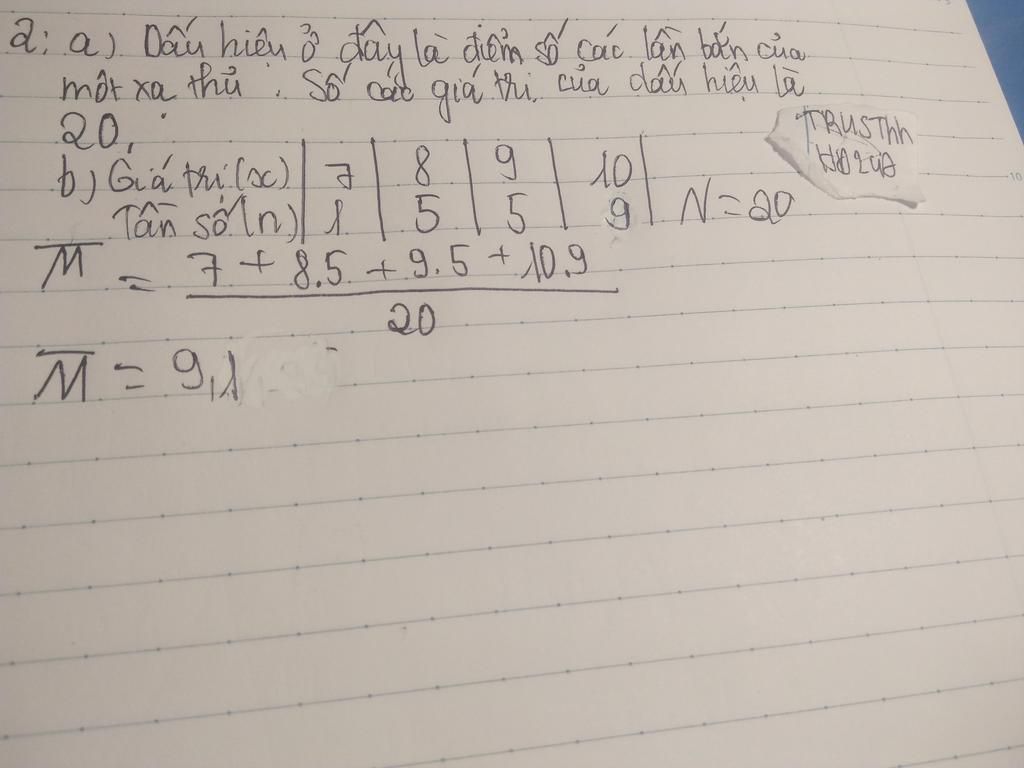 2: a) Dấu hiệu ở đây là điểm số các lần bắn của
một xa thủ. Số các giá trị của dấu hiệu là
20.
b) Giá trị (x) | 7 | 8 | 9 | 10 |
Tần số (n) | 1 | 5 | 5 | 9 | N = 20
M = 7 + 8.5 + 9.5 + 10.9
20
M = 9,1
TRUSThh